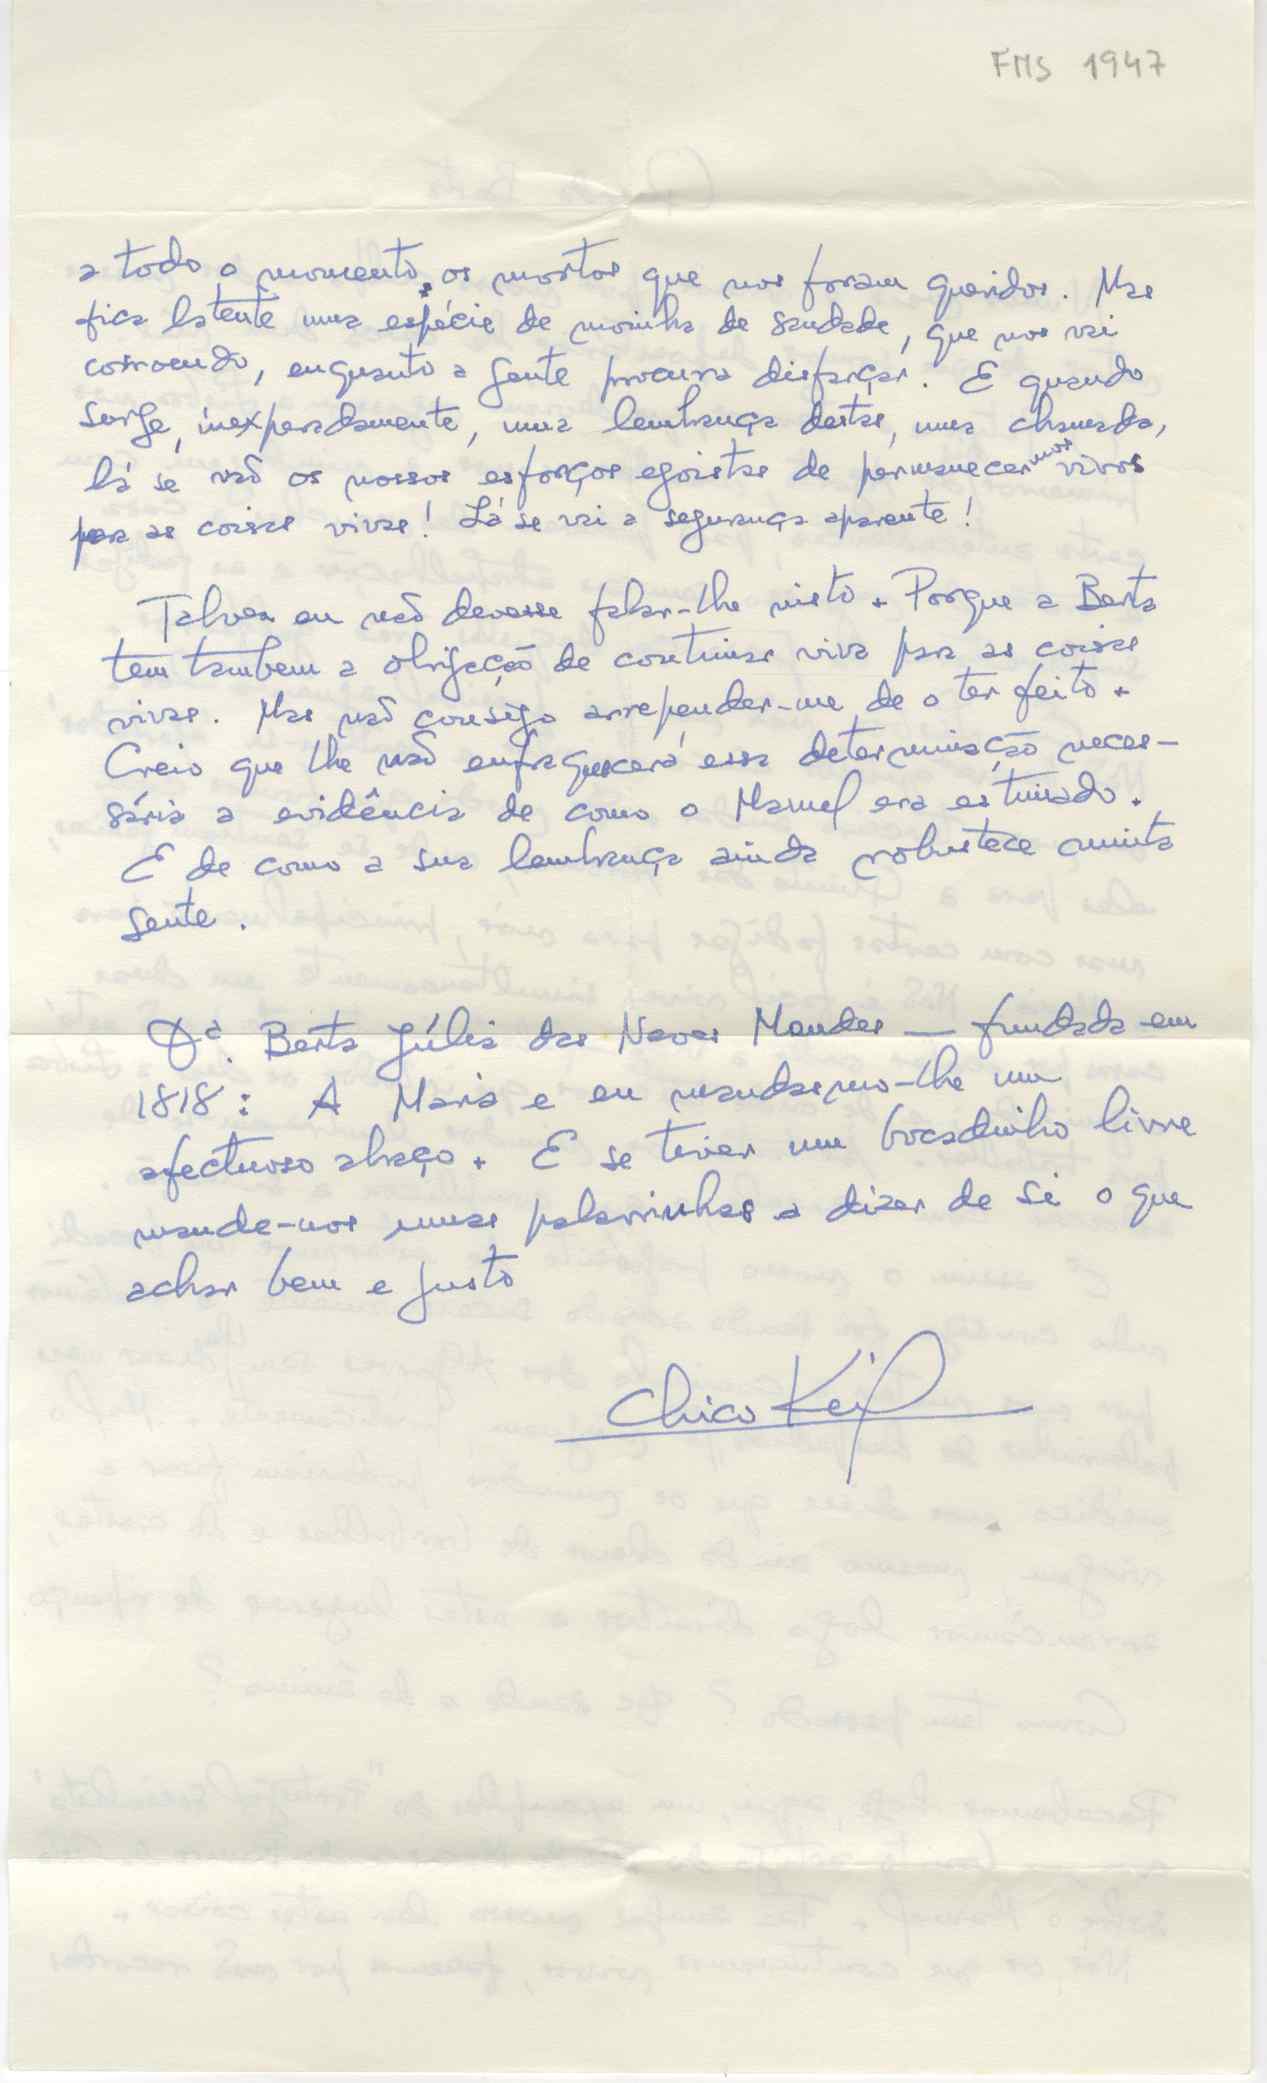 FMS 1947
a todo o momento, os mortos que nos foram queridos. Mas
fica latente uma espécie de moinha de saudade, que nos vai
corroendo, enquanto a gente procura disfarçar. E quando
surge, inexperadamente, uma lembrança destas, uma chamada,
lá se vão os nossos esforços egoistas de permanecermos vivos
para as coisas vivas! Lá se vai a segurança aparente!
Talvez eu não devesse falar-lhe nisto. Porque a Berta
tem tambem a obrigação de continuar viva para as coisas
vivas. Mas não consigo arrepender-me de o ter feito.
Creio que lhe não enfraquecerá essa determinação neces-
sária a evidência de como o Manuel era estimado.
E de como a sua lembrança ainda robustece muita
gente.
Dª. Berta Júlia das Neves Mendes — fundada em
1818: A Maria e eu mandasmo-lhe um
afectuoso abraço. E se tiver um bocadinho livre
mande-nos umas palavrinhas a dizer de si o que
achar bem e justo
Chico Keil